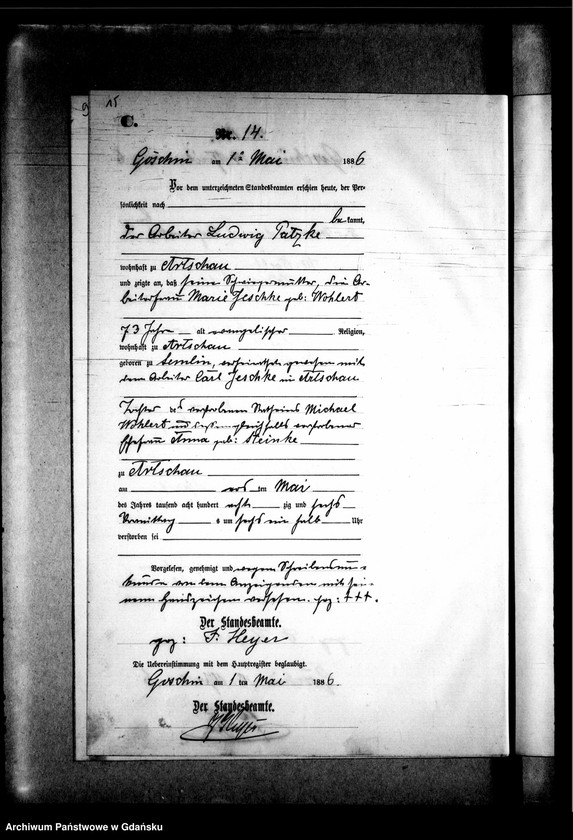 15
C.
Nr. 14.
Goschin am 1ten Mai 1886
Vor dem unterzeichneten Standesbeamten erschien heute, der Per-
sönlichkeit nach
bekannt,
der Arbeiter Ludwig Patzke
wohnhaft zu Artschau
und zeigte an, daß seine Schwiegermutter, die Ar-
beiterfrau Marie Jeschke geb: Wohlert
73 Jahre alt evangelischer Religion,
wohnhaft zu Artschau
geboren zu Semlin, verheirathet gewesen mit
dem Arbeiter Carl Jeschke in Artschau
Tochter des verstorbenen Michael
Wohlert und dessen gleichfalls verstorbener
Ehefrau Anna geb: Steinke
zu Artschau
am ersten Mai
des Jahres tausend acht hundert achtzig und sechs
Vormittag s um sechs ein halb Uhr
verstorben sei
Vorgelesen, genehmigt und wegen Schreibensun-
kunde von dem Anzeigenden mit sei-
nem Handzeichen versehen. gez: +++.
Der Standesbeamte.
gez: F. Heyer
Die Uebereinstimmung mit dem Hauptregister beglaubigt.
Goschin am 1 ten Mai 1886.
Der Standesbeamte.
F Heyer
Archiwum Państwowe w Gdańsku